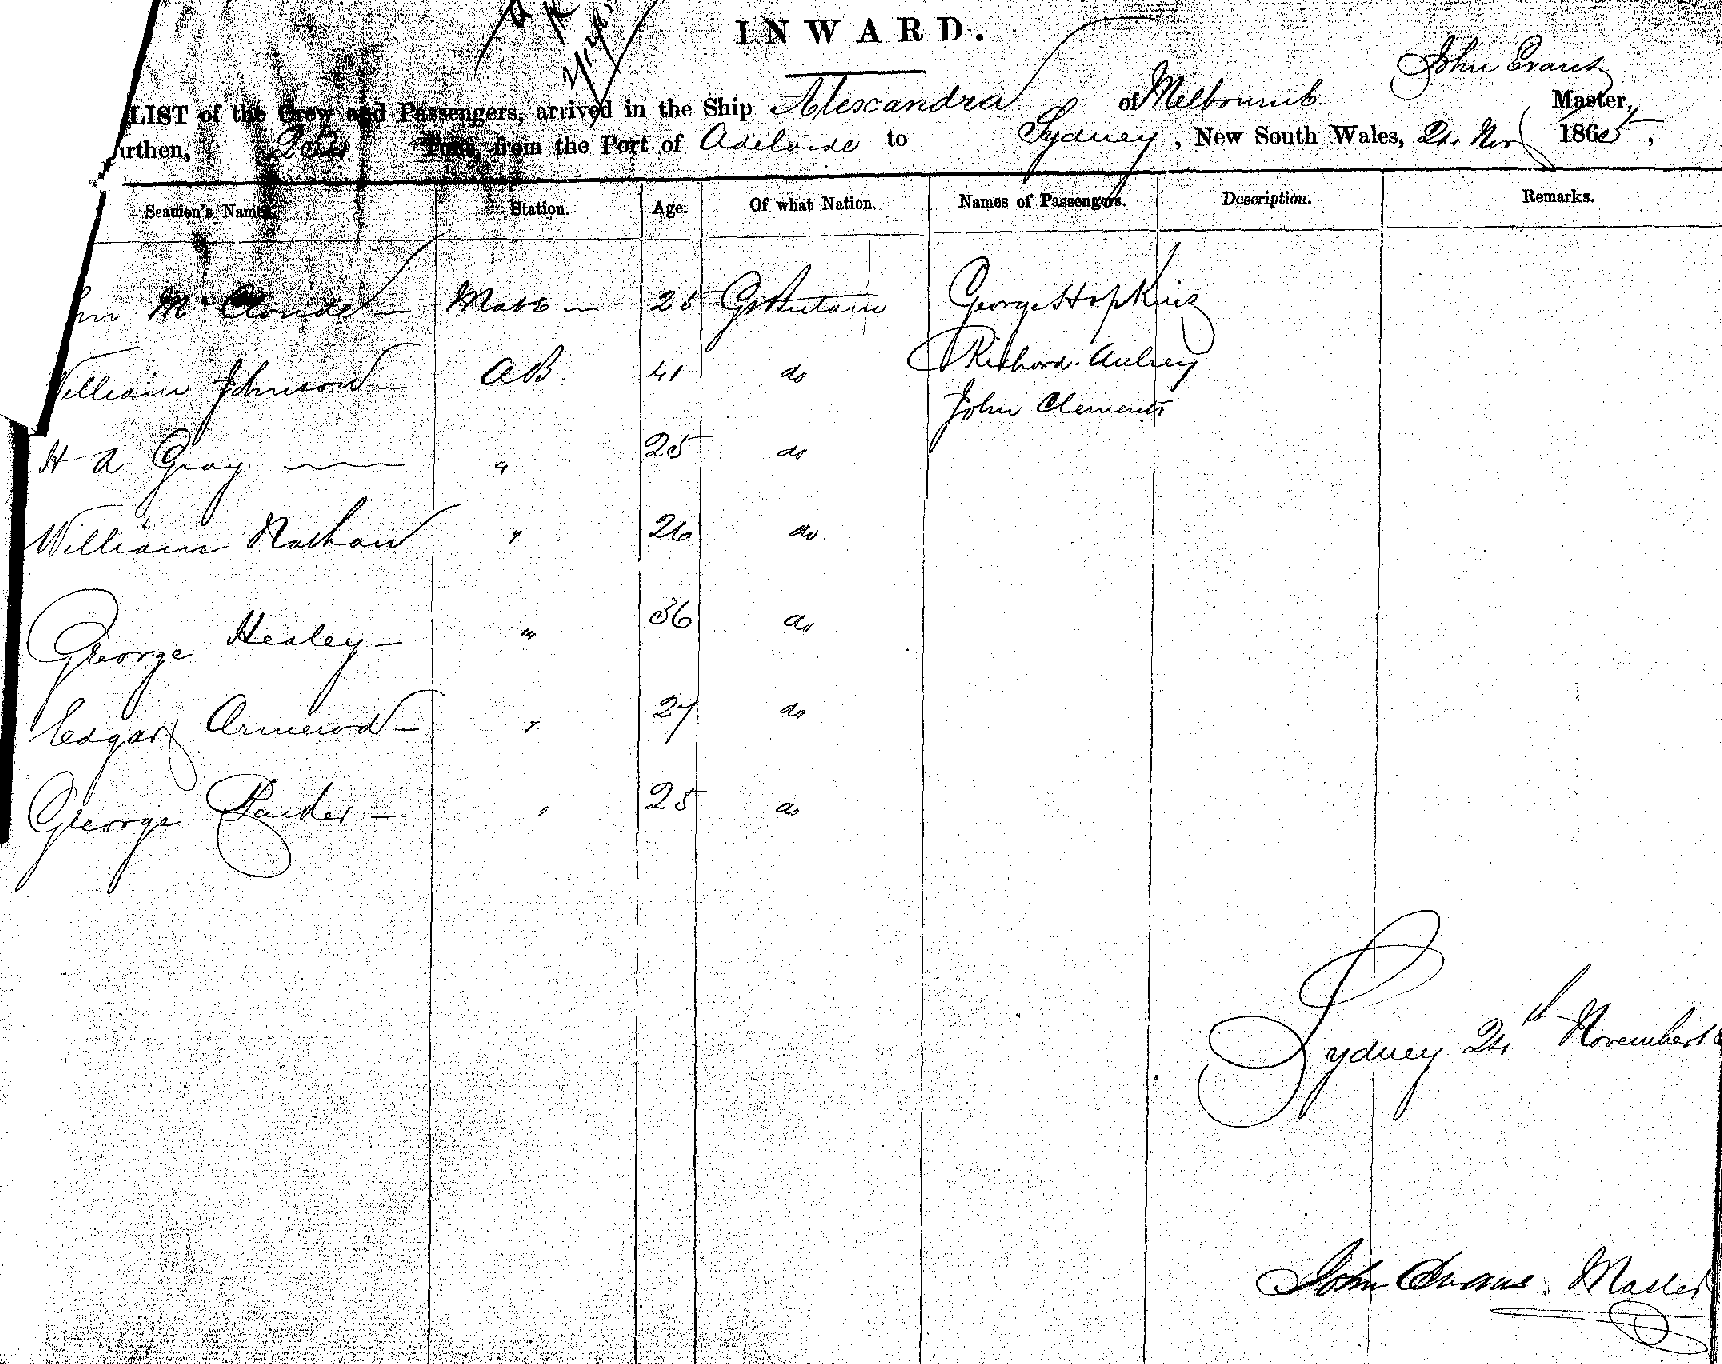 INWARD.
John Evans
LIST of the Crew and Passengers, arrived in the Ship Alexandra of Melbourne Master,
urthen, Tons, from the Port of Adelaide to Sydney, New South Wales, 24 Nov 1865,
Seamen's Names. Station. Age. Of what Nation. Names of Passengers. Description. Remarks.
Mc Mate 25 Gt Britain George Hopkins
William Johnson AB 41 do Richard Aubrey
John Clements
H A Gray " 25 do
William Nathan " 26 do
George Healey " 36 do
Edgar Armerod " 27 do
George " 25 do
Sydney 24th November
John Evans. Master